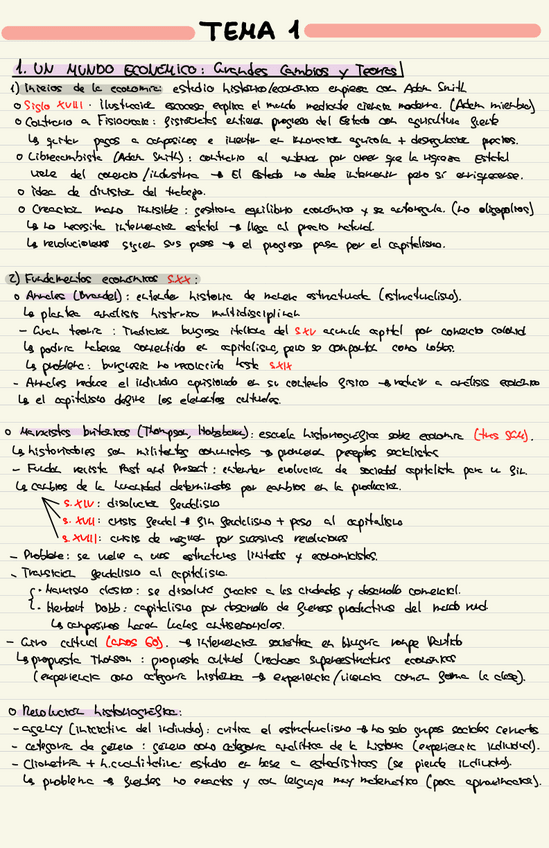 TEMA 1
1. UN MUNDO ECONÓMICO: Grandes Cambios y Teorías
1) Inicios de la economía: estudio histórico/económico empieza con Adam Smith
o Siglo XVIII · Ilustración escocesa explica el mundo mediante ciencia moderna. (Adam miembro)
o Contrario a Fisiocracia: fisiócratas entienden progreso del Estado con agricultura fuerte
↳ quitar pagos a campesinos e invertir en innovación agrícola + desregularizar precios.
o Librecambista (Adam Smith): contrario al anterior por creer que la riqueza Estatal
viene del comercio/industria → El Estado no debe intervenir pero sí enriquecerse.
o idea de división del trabajo.
o Creación mano invisible: gestiona equilibrio económico y se autorregula. (no oligopolios)
↳ no necesita intervención estatal → llega al precio natural.
↳ revoluciones siguen sus pasos → el progreso pasa por el capitalismo.
2) Fundamentos económicos SXX:
o Annales (Braudel): entender historia de manera estructurada (estructuralismo).
↳ plantea análisis histórico multidisciplinar
- Gran teoría: Tradición burguesa italiana del SXV acumula capital por comercio colonial
↳ podría haberse convertido en capitalismo, pero se comporta como lobbs.
↳ problema: burguesía no revolucionaria hasta SXIX
- Annales reduce el individuo aprisionado en su contexto físico → reducir a análisis económico
↳ el capitalismo define los elementos culturales.
o Marxistas británicos (Thompson, Hobsbawm): escuela historiográfica sobre economía (tras SGM).
↳ historiadores son militantes comunistas → promover preceptos socialistas
- Fundan revista Past and Present: entender evolución de sociedad capitalista para un fin.
↳ cambios de la humanidad determinados por cambios en la producción.
S. XIV: disolución feudalismo
S. XVII: crisis feudal → fin feudalismo + paso al capitalismo
S. XVIII: crisis de por sucesivas revoluciones
- Problema: se vuelve a unas estructuras limitadas y economicistas.
- Transición feudalismo al capitalismo.
· Marxismo clásico: se disolvió gracias a las ciudades y desarrollo comercial.
· Herbert Dobb: capitalismo por desarrollo de fuerzas productivas del mundo rural
↳ campesinos hacen luchas antiseñoriales.
- Giro cultural (años 60). → intervención soviética en Hungría rompe Partido
↳ propuesta Thomson: propuesta cultural (rechaza superestructura económica)
(experiencia como categoría histórica → experiencia/vivencia común forma la clase).
o Revolución historiográfica:
- agency (iniciativa del individuo): critica el estructuralismo → no solo grupos sociales cerrados
- categoría de género: género como categoría analítica de la historia (experiencia individual).
- Cliometría + h.cuantitativa: estudio en base a estadísticas (se pierde individuo).
↳ problema → fuentes no exactas y con lenguaje muy matemático (poca aproximación).